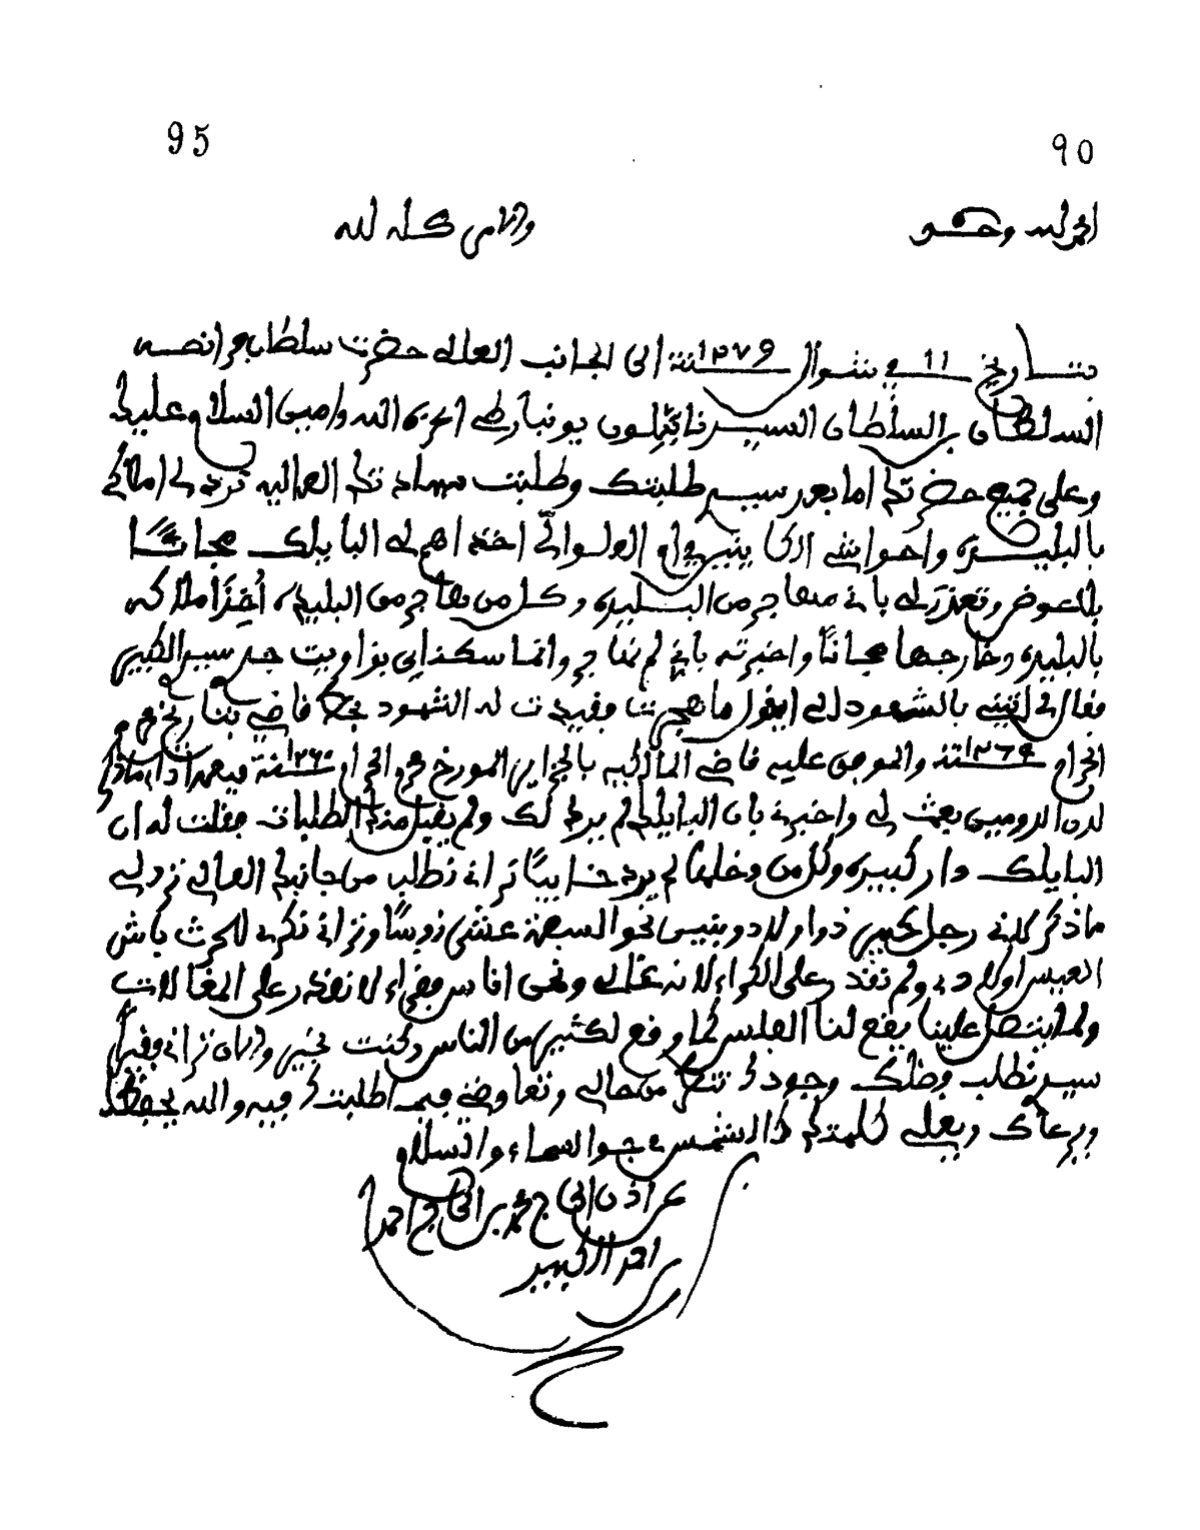 95 90
الحمد لله وحده والامر كله لله
بتاريخ 11 في شوال سنة ١٢٧٩ الى الجانب العالى حضرت سلطان فرانصه
السلطان بن السلطان السيد نابليون بونبارطي اعزه الله وامين السلام عليك
وعلى جميع حضرتكم اما بعد سيد طلبتك وطلبت سيادتكم العالية ترد لى املاكي
بالبليدة واحوانتي الذي العلواتي اخذاهم لي البايلك مجانًا
بلا عوض وتعذر لي باني مهاجر من البليدة وكل من هاجر من البليدة أُخِذَ املاكه
بالبليدة وخارجها مجانًا واخبرته باني لم نهاجر وانما سكناي بزاويت جد سيد الكبير
فقال لى اتيني بالشهود لي ايقول ما هجرت فقيدت له الشهود بخط قاضي بتاريخ محرم
الحرام سنة ١٢٦٤ والموجن عليه قاضي المالكية بالجزاير المورخ محرم الحرام سنة ١٢٦٠
لدن الدومين بعث لي واخبرني بان البايلك لم يرد لك ولم يقبل منكم الطلبات فقلت له ان
البايلك دار كبيرة وكل من دخلها لم يرد خايبًا تراني نطلب من جانبكم العالي ترد لي
ما ذكر لاني رجل كبير ذو اولاد وبنين نحو السبعة عشر نوسًا وتراني نكري للحرث باش
انعيش اولادي ولم نقدر على الكراء لانه غالي ونحن اناس فقراء لا نقدر على المغالات
ولما ينتصل علينا يقع لنا الفلس كما وقع لكثير من الناس وكنت بخير والان تراني فقيرًا
سيد نطلب فضلك وجودك تنظر من حالي وتعاوضني فيما طلبتك فيه والله يحفظك
ويرعاك ويعلي كلمتكم كالشمس في جو السماء والسلام
عن اذن الحاج محمد بن الحاج احمد
احمد الكبير